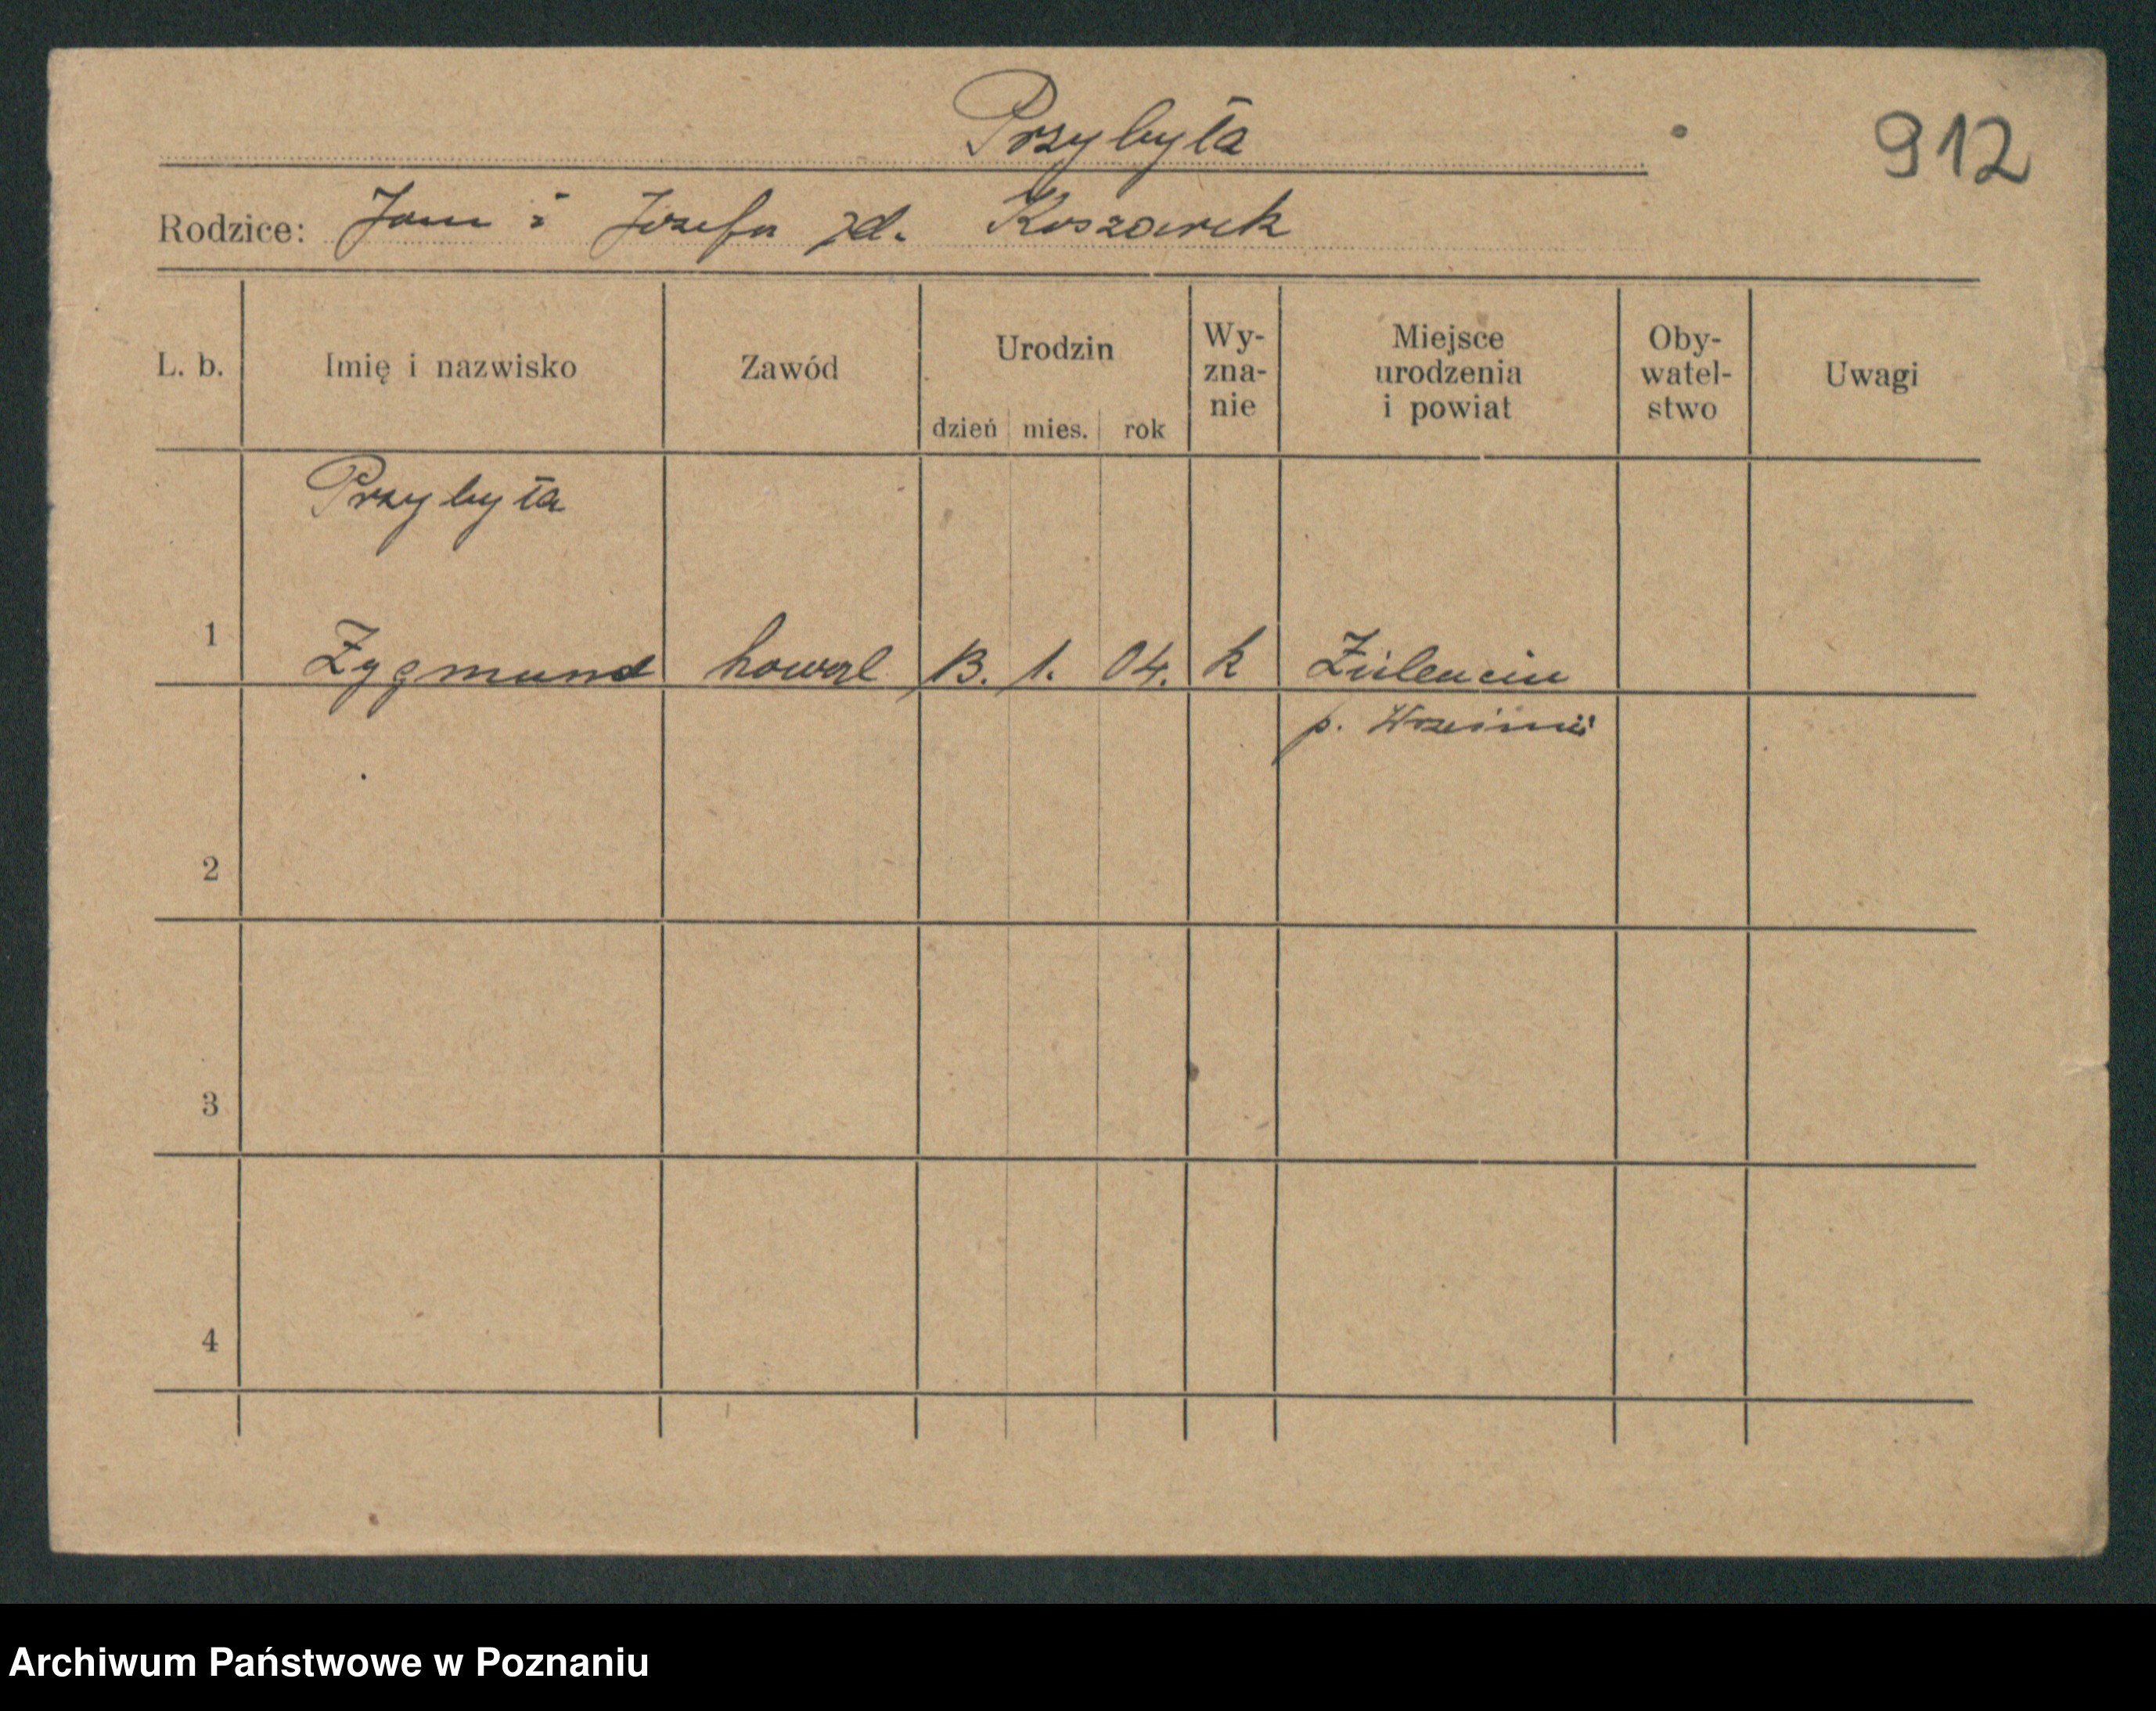 Przybyła
912
Rodzice: Jan i Józefa zd. Koszarek
L. b. Imię i nazwisko Zawód Urodzin dzień mies. rok Wy-zna-nie Miejsce urodzenia i powiat Oby-watel-stwo Uwagi
Przybyła
1 Zygmund kowal 13. 1. 04. k
p.
2
3
4
Archiwum Państwowe w Poznaniu